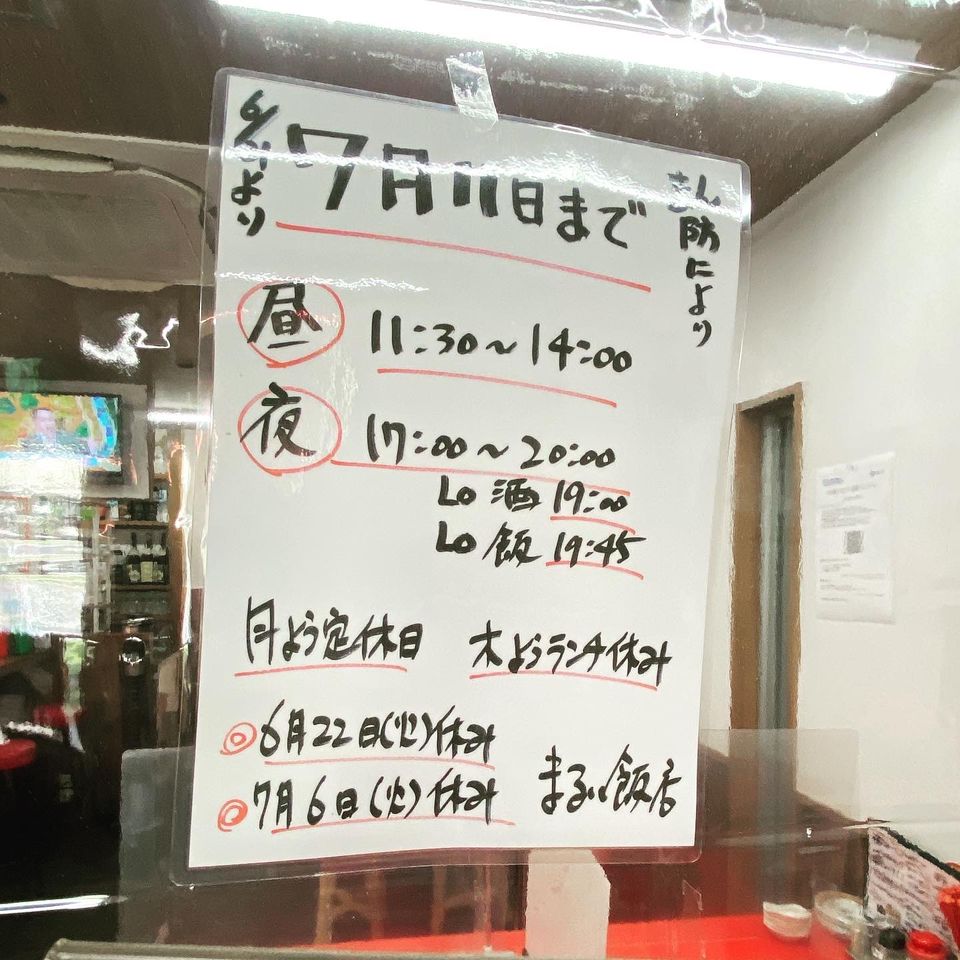 まん防により
6/21より
7月11日まで
昼 11:30～14:00
夜 17:00～20:00
Lo 酒 19:00
Lo 飯 19:45
月よう定休日
木ようランチ休み
◎6月22日(火)休み
◎7月6日(火)休み
まるい飯店